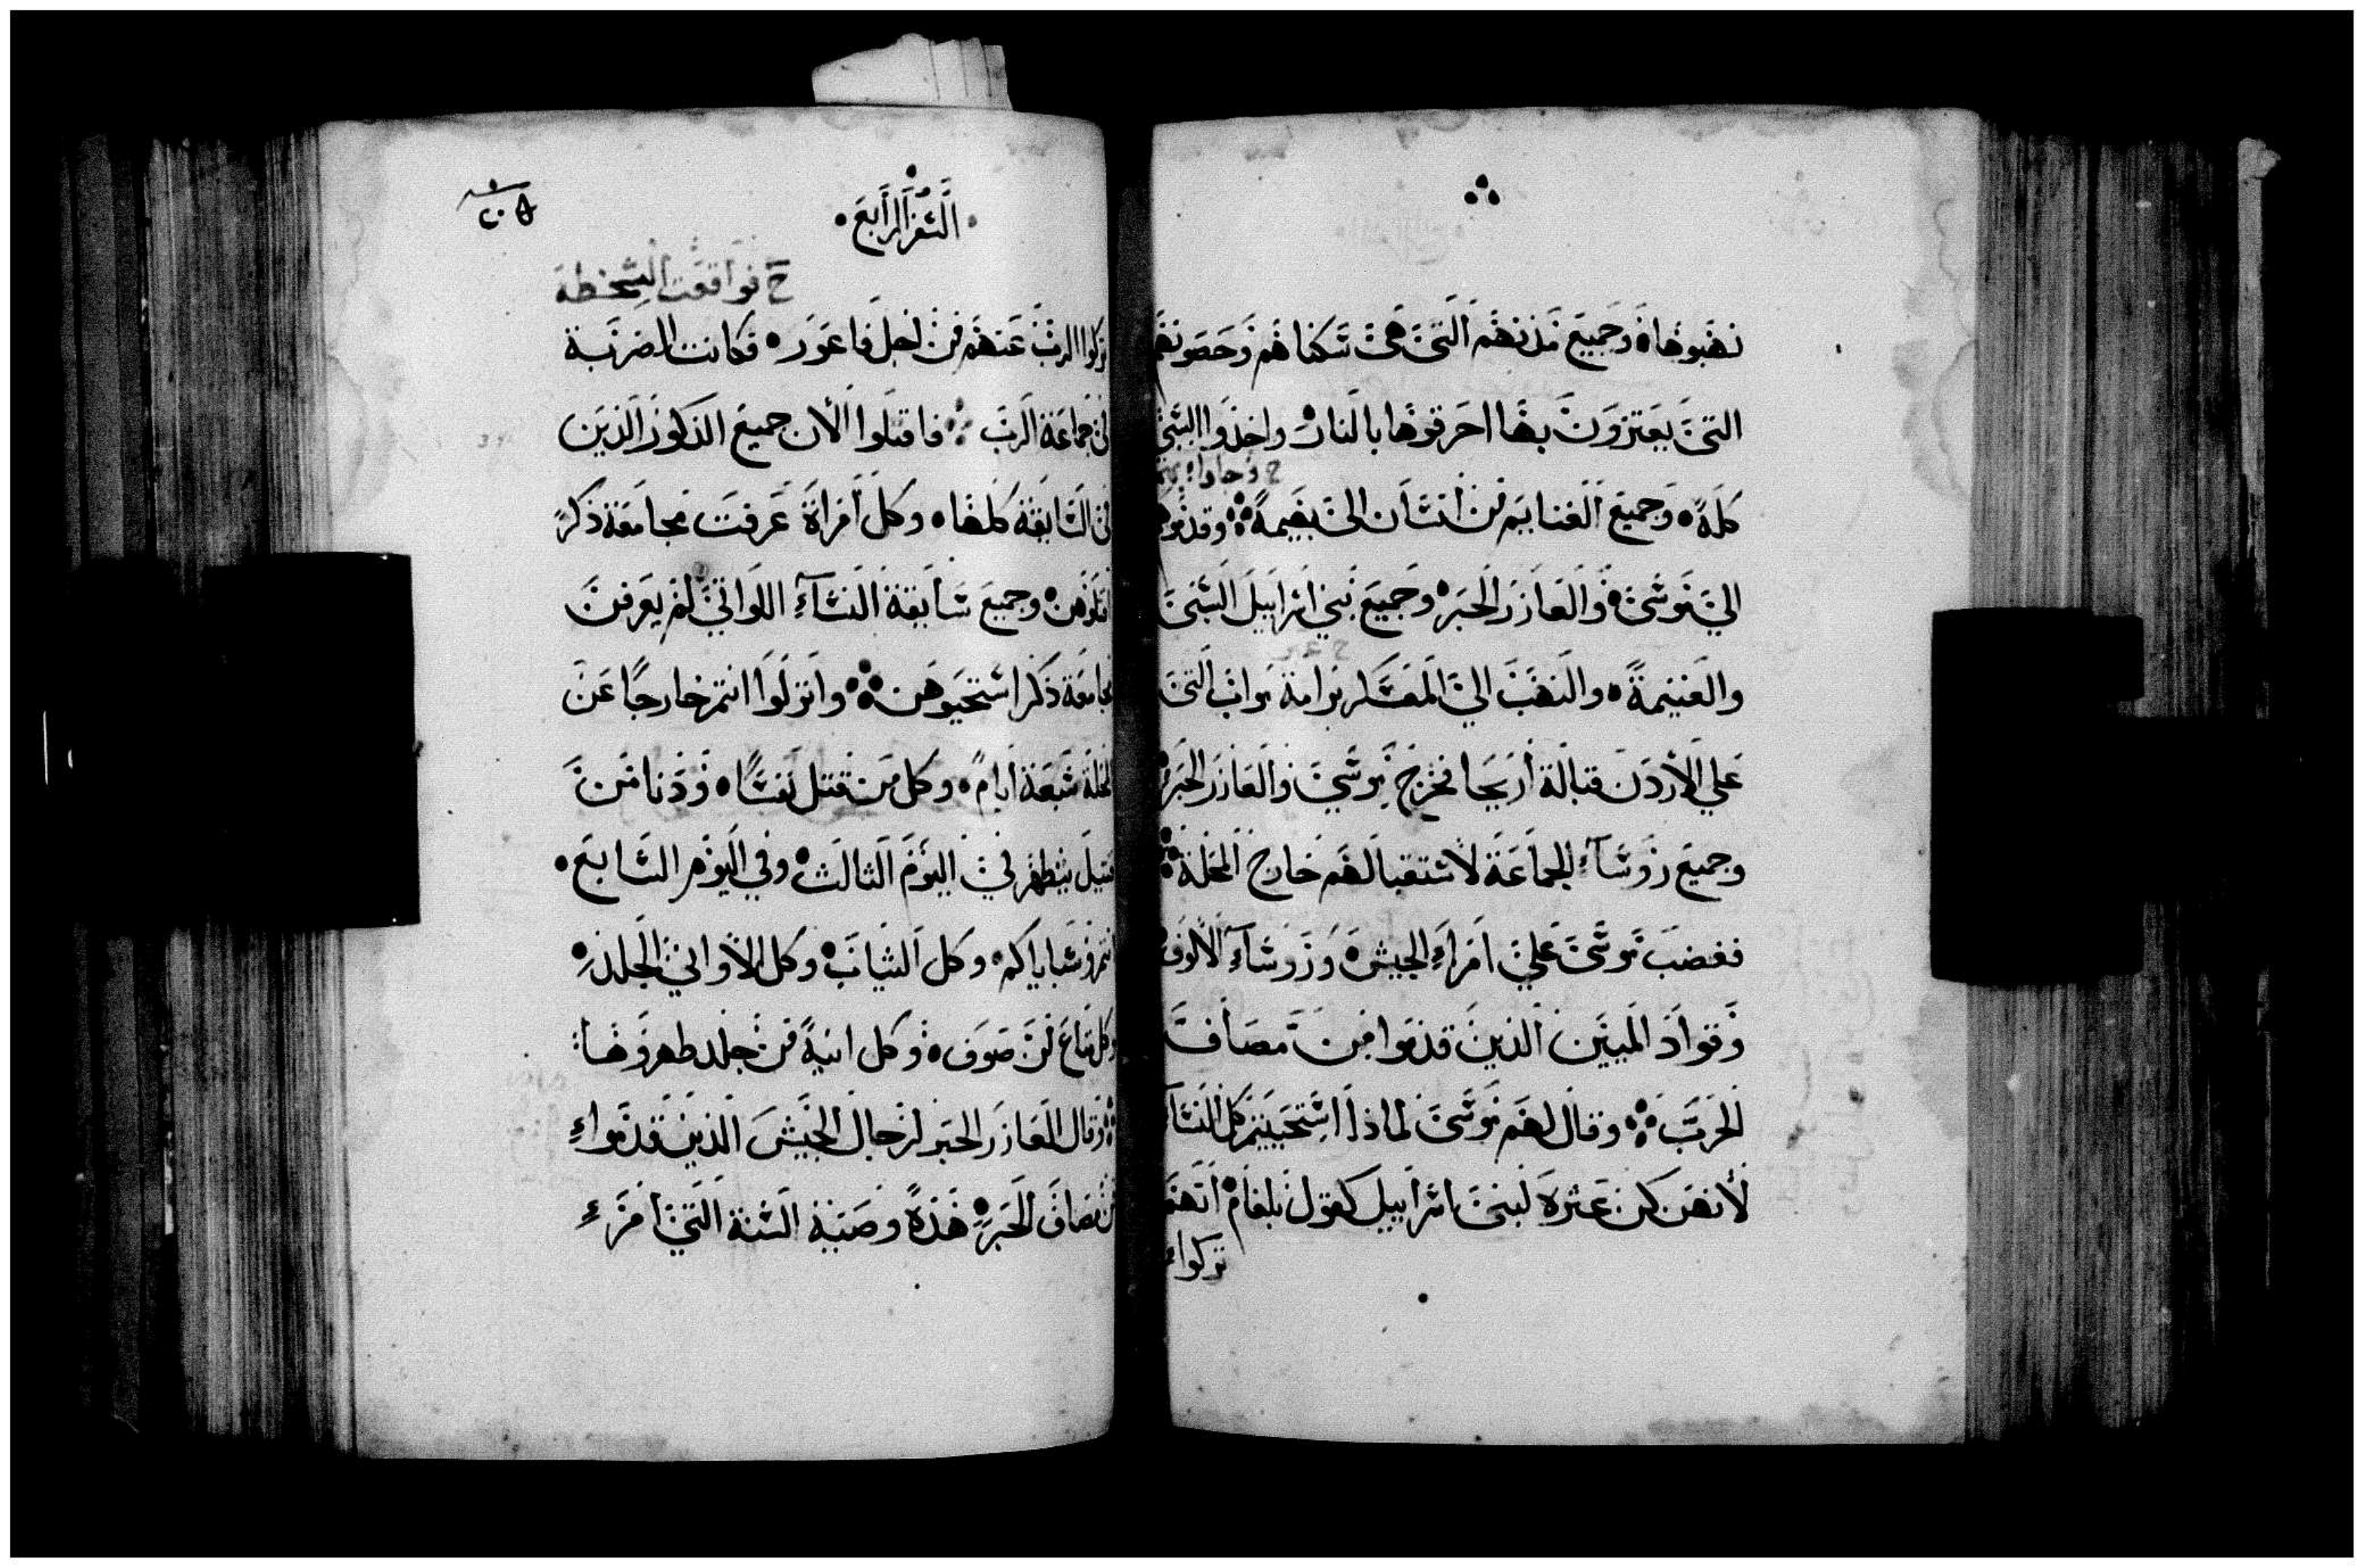 نهبوها وجميع مدنهم التي هي سكناهم وحصونهم
التي يعتزون بها احرقوها بالنار واخذوا السبي
كله وجميع الغنايم من انسان الى بهيمة وقدموها
الي موسى والعازر الحبر وجميع بني اسراييل السبى
والغنيمة والنهب الي المعسكر برابة مواب التى
علي الاردن قبالة اريحا فخرج موسي والعازر الحبر
وجميع روسآء الجماعة لاستقبالهم خارج المحلة
فغضب موسى علي امرآء الجيش وروسآء الالوف
وقواد الميين الذين قدموا من مصاف
الحرب وقال لهم موسى لماذا استحييتم كل النسآ
لانهن كن عثرة لبنى اسراييل كقول بلعام انهم
تركوا
السفر الرابع
٢٠٥
ح فواقعت السخطة
تركوا الرب عنهم من اجل فاعور فكانت الضربة
في جماعة الرب فاقتلوا الان جميع الذكور الذين
في السابقة كلها وكل امراة عرفت مجامعة ذكر
اقتلوهن وجميع سابقة النسآء اللواتي لم يعرفن
مجامعة ذكر استحيوهن وانزلوا انتم خارجا عن
المحلة سبعة ايام وكل من قتل نفسا ودنا من
قتيل يتطهر في اليوم الثالث وفي اليوم السابع
انتم وسباياكم وكل الثياب وكل الاواني الجلد
وكل متاع من صوف وكل انية من جلد طهروها
وقال العازر الحبر لرجال الجيش الذين قدموا
من مصاف الحرب هذه وصية السنة التي امر